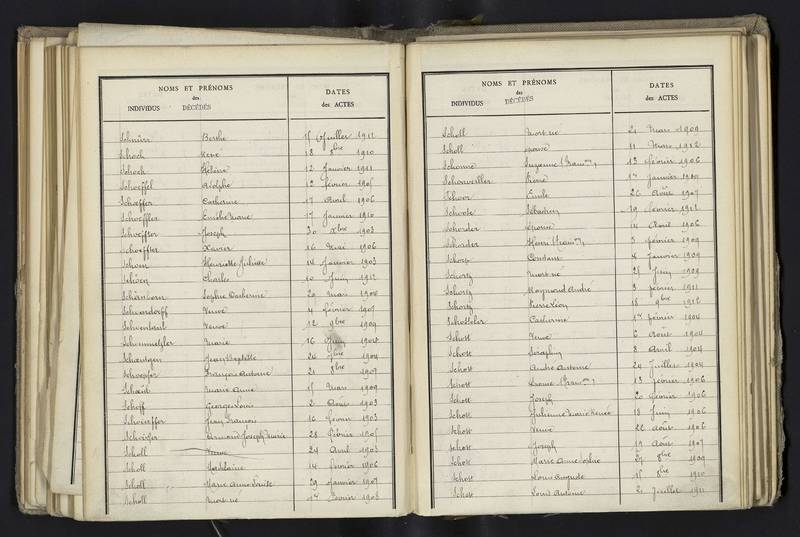 NOMS ET PRÉNOMS
des
INDIVIDUS DÉCÉDÉS
DATES
des ACTES
Schnürr Berthe 15 Juillet 1912
Schoch René 18 8bre 1910
Schoch Hélène 12 Janvier 1911
Schoeffel Adolphe 12 février 1905
Schoeffer Catherine 17 Avril 1906
Schoeffler Emilie Marie 17 Janvier 1910
Schoeffter Joseph 30 Xbre 1903
Schoeffter Xavier 16 Mai 1906
Schoen Henriette Juliette 14 Janvier 1903
Schoen Charles 10 Juin 1912
Schönborn Sophie Catherine 20 Mars 1904
Veuve 4 février 1907
Veuve 12 9bre 1909
Marie 16 Juin 1904
Jean Baptiste 26 7bre 1904
Schoepfer François Antoine 21 8bre 1907
Marie Anne 15 Mars 1909
Schoff Georges Louis 2 Août 1903
Jean François 16 février 1903
Armand Joseph Marie 28 février 1905
Scholl Veuve 24 Avril 1903
Scholl Madeleine 14 février 1906
Scholl Marie Anne Louise 29 Janvier 1907
Scholl Mort né 1er février 1908
NOMS ET PRÉNOMS
des
INDIVIDUS DÉCÉDÉS
DATES
des ACTES
Scholl Mort né 21 Mars 1909
Scholl épouse 11 Mars 1912
Suzanne 13 février 1906
Schonweiller Pierre 1er Janvier 1910
Schoor Emile 26 Août 1907
Sébastien 19 février 1912
Schorder épouse 14 Avril 1906
Schorder Henri 5 février 1909
Schorp Constant 8 Janvier 1909
Schortz Mort né 28 Juin 1909
Schortz Raymond André 3 février 1911
Schortz Pierre Léon 18 9bre 1912
Schosseler Catherine 1er février 1904
Schott Veuve 6 Août 1904
Schott Séraphin 8 Avril 1904
Schott André Antoine 24 Juillet 1904
Schott 13 février 1906
Schott Joseph 20 février 1906
Schott Julienne Marie Renée 18 Juin 1906
Schott Veuve 22 Août 1906
Schott Joseph 19 Août 1907
Schott Marie Anne 27 8bre 1909
Schott Louis Auguste 15 8bre 1910
Schott Louis Antoine 2 Juillet 1911